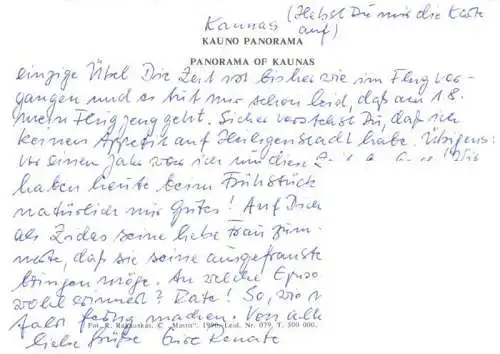 Kaunas (Hebst Du mir die Karte
auf)
KAUNO PANORAMA
PANORAMA OF KAUNAS
einzige Übel. Die Zeit ist bisher wie im Flug ver-
gangen und es tut mir schon leid, daß am 1.8.
mein Flugzeug geht. Sicher verstehst Du, daß ich
keinen Appetit auf Heiligenstadt habe. Übrigens:
vor einem Jahr war ich um diese
haben heute beim Frühstück
natürlich nur Gutes! Auf Dich
als seine liebe Frau zum
mute, daß sie seine ausgefranste
bringen möge. An welche
wohl erinnert? Rate! So,
fertig machen. Von alle
liebe Grüße Eure Renate
Fot. R. Rakauskas. © "Mintis", 1990. Leid. Nr. 079. T. 500 000.